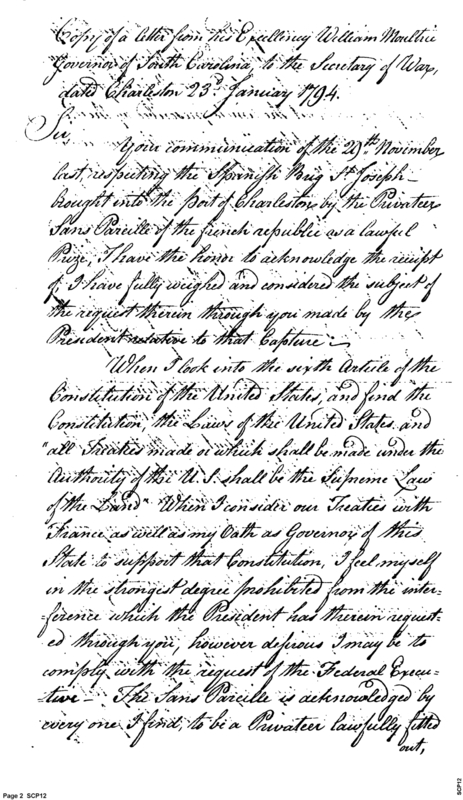 Copy of a letter from his Excellency William Moultrie
Governor of South Carolina, to the Secretary of War,
dated Charleston 23d January 1794.
Sir,
Your communication of the 29th November
last, respecting the Spanish Brig St Joseph
brought into the port of Charleston by the Privateer
Sans Pareille of the french republic as a lawful
Prize, I have the honor to acknowledge the receipt
of. I have fully weighed and considered the subject of
the request therein through you made by the
President relative to that Capture.
When I look into the sixth Article of the
Constitution of the United States, and find the
Constitution, the Laws of the United States and
"all Treaties made or which shall be made under the
Authority of the U. S. shall be the Supreme Law
of the Land" When I consider our Treaties with
France as well as my Oath as Governor of this
State to support that Constitution, I feel myself
in the strongest degree prohibited from the inter-
-ference which the President has therein request-
ed through you, however desirous I may be to
comply with the request of the Federal Execu-
-tive - The Sans Pareille is acknowledged by
every one I find, to be a Privateer lawfully fitted
out,
Page 2 SCP12
SCP12